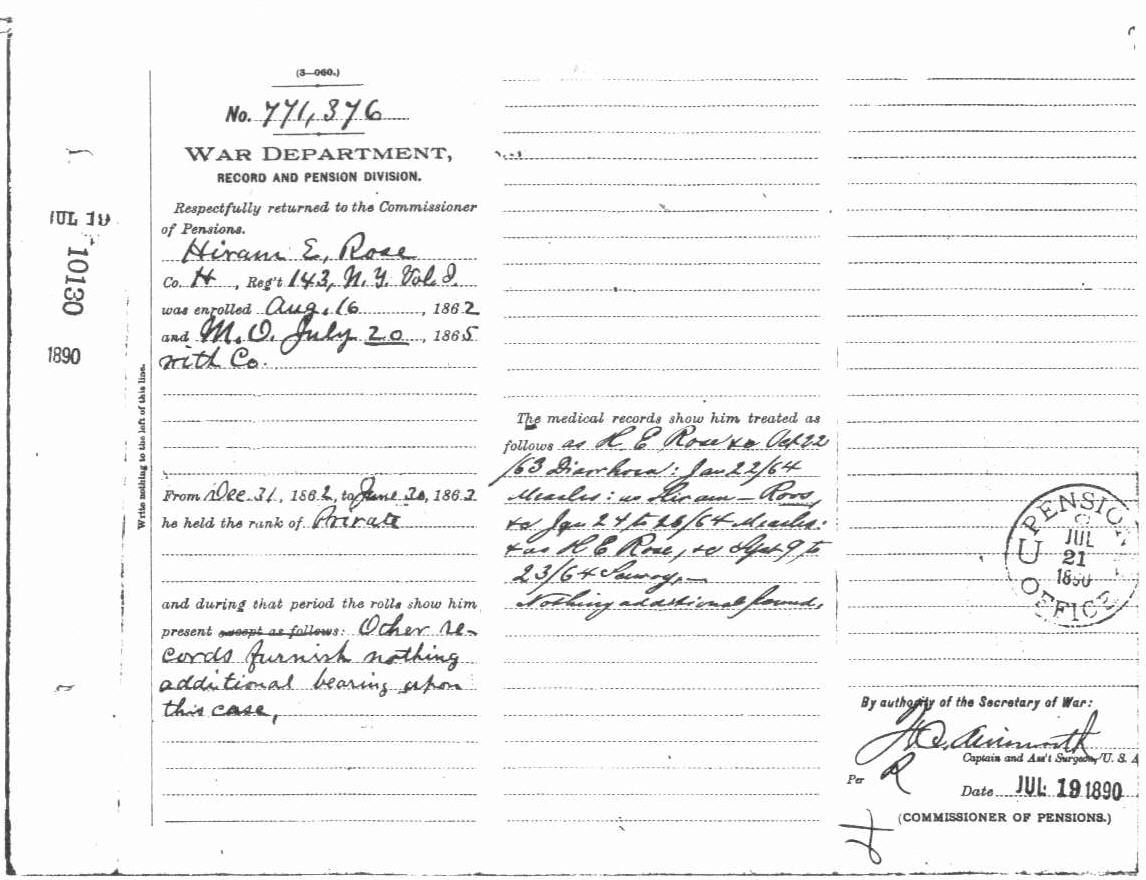 (3—060.)
No. 771,376
WAR DEPARTMENT,
RECORD AND PENSION DIVISION.
Respectfully returned to the Commissioner
of Pensions.
Hiram E, Rose
Co. H, Reg't 143, N. Y. Vol. I.
was enrolled Aug. 16, 1862
and M.O. July 20, 1865
with Co.
From Dec. 31, 1862, to June 30, 1863
he held the rank of Private
and during that period the rolls show him
present except as follows: Other re-
cords furnish nothing
additional bearing upon
this case,
JUL 19
10130
1890
Write nothing to the left of this line.
The medical records show him treated as
follows as H E Rose &c Oct 22
/63 Diarrhoea: Jan 22/64
Measles: as Hiram — Roos,
&c Jan 24 to 26/64 Measles:
& as H E Rose, &c Sept 9 to
23/64
Nothing additional found,
U.S. PENSION OFFICE
JUL
21
1890
By authority of the Secretary of War:
F.C. Ainsworth
Captain and Ass't Surgeon, U. S. A
Per R
Date JUL 19 1890
(COMMISSIONER OF PENSIONS.)